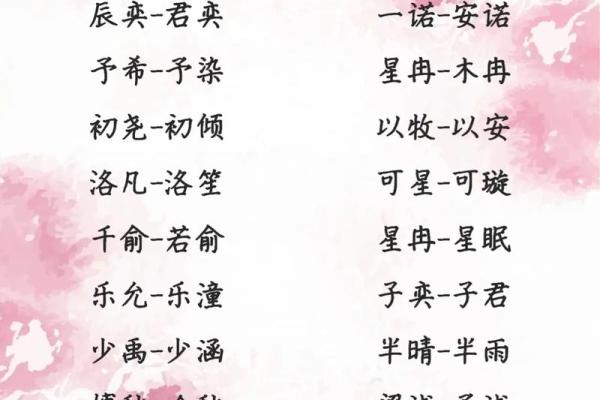 辰奕-君奕 一诺-安诺
予希-予染 星冉-木冉
初尧-初倾 以牧-以安
洛凡-洛笙 可星-可璇
千俞-若俞 星冉-星眠
乐允-乐潼 子奕-子君
少禹-少涵 半晴-半雨